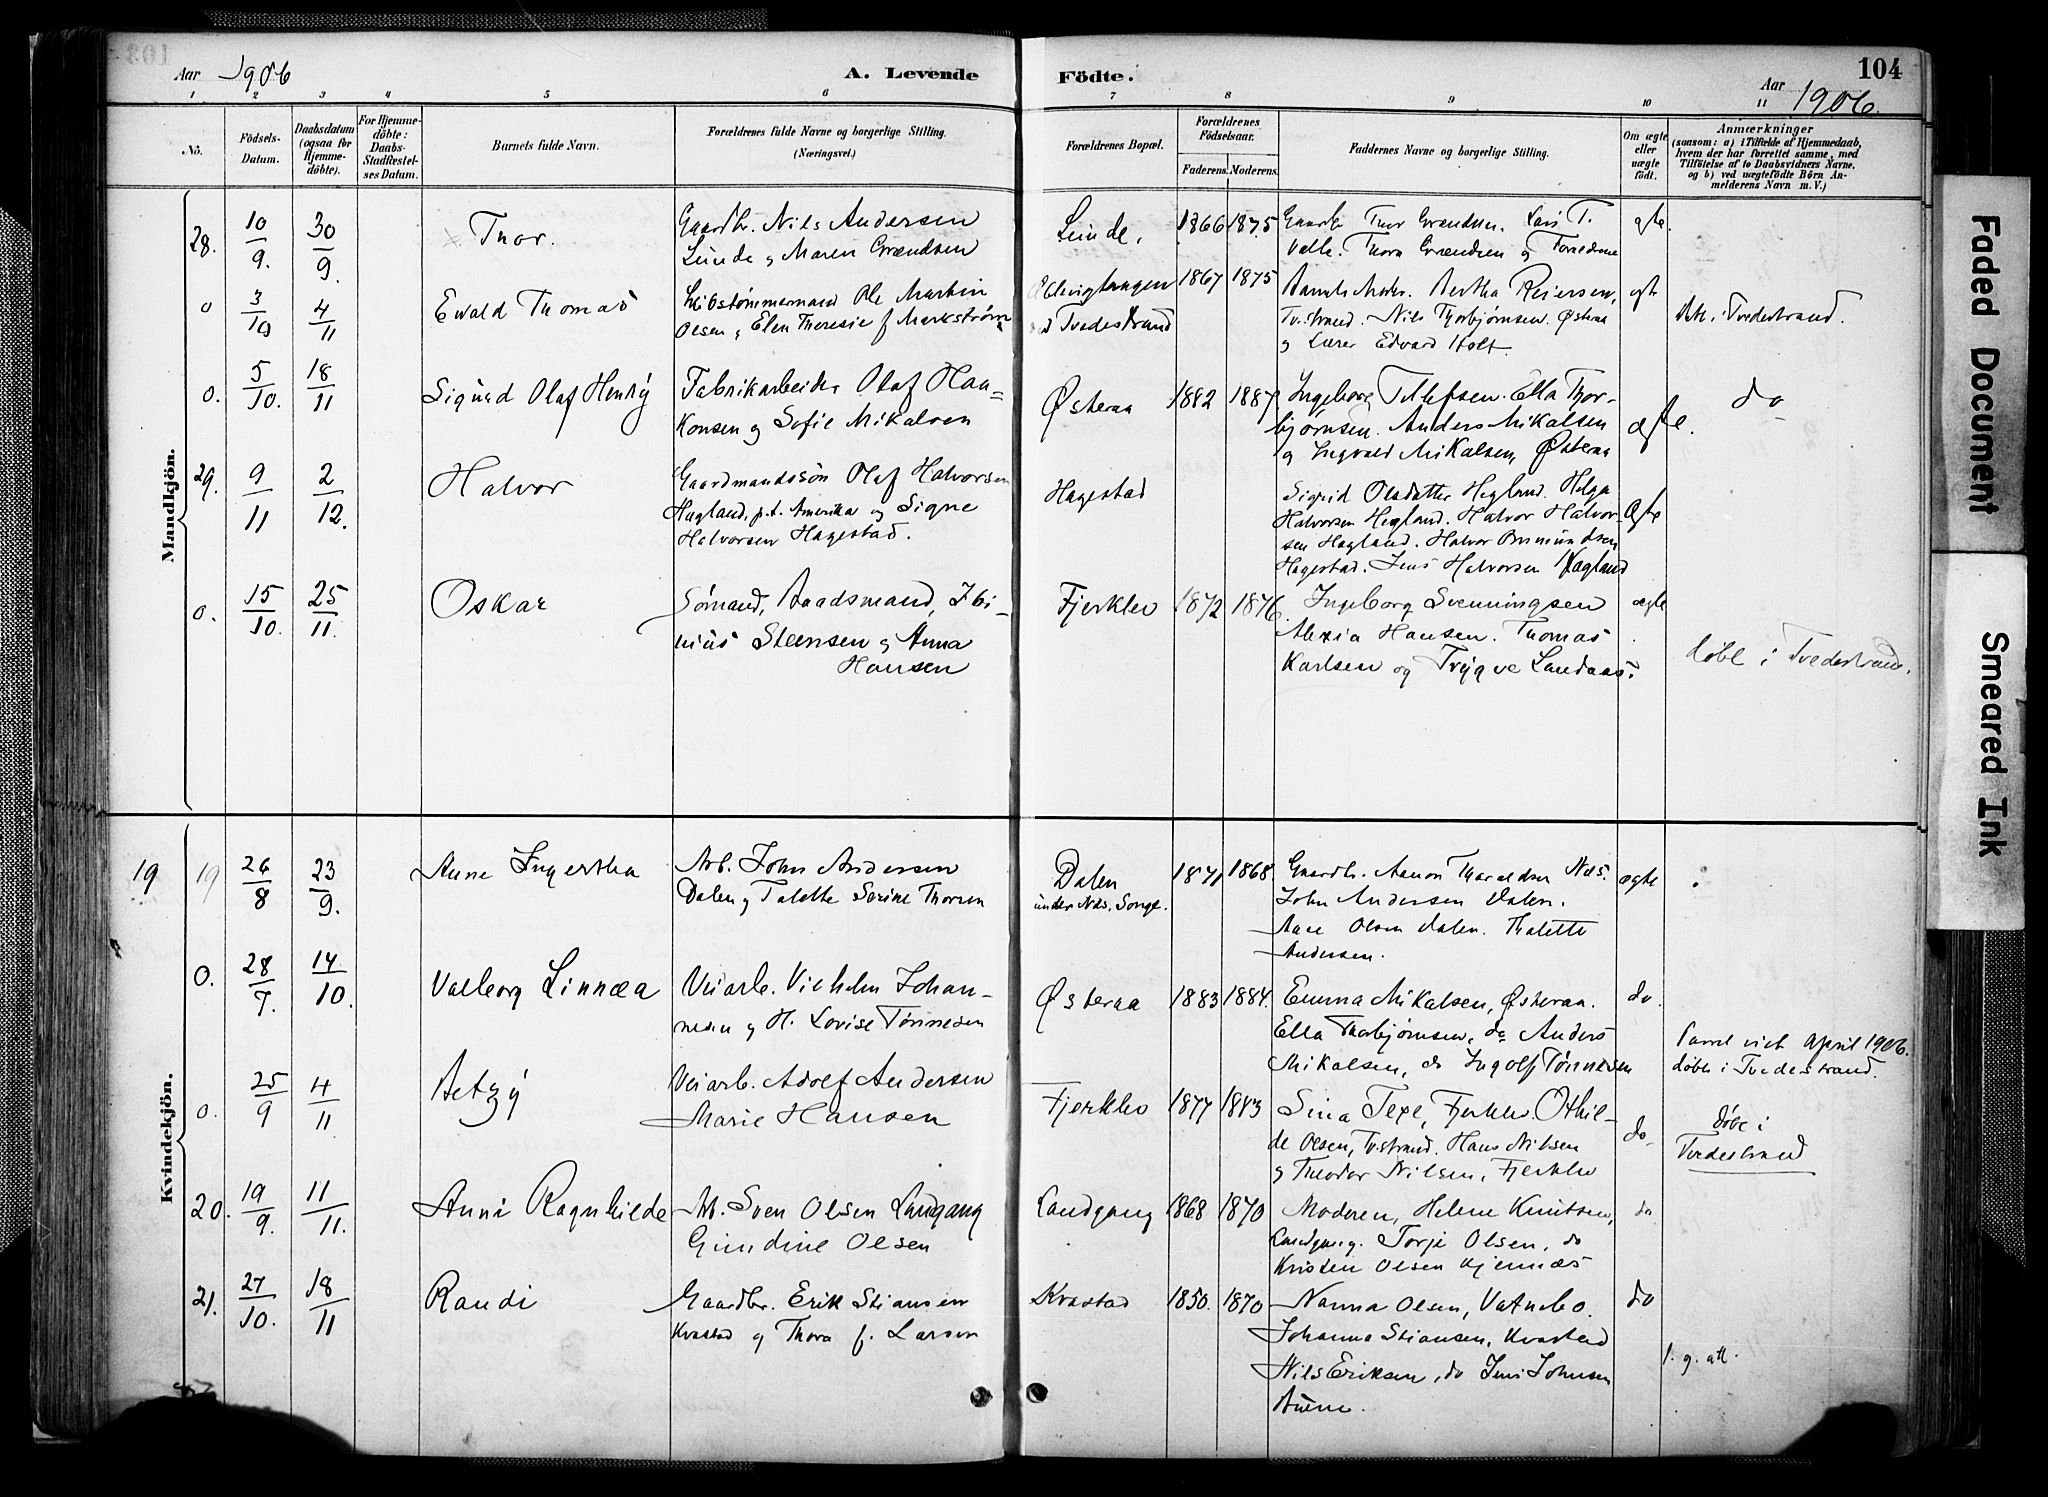 Aar 1906
A. Levende
Födte.
104
Aar 1906.
1 2 3 4 5 6 7 8 9 10 11
No.
Födsels-Datum.
Daabsdatum (ogsaa for Hjemme-döbte).
For Hjemme-döbte: Daabs-Stadfæstel-ses Datum.
Barnets fulde Navn.
Forældrenes fulde Navne og borgerlige Stilling.
(Næringsvei.)
Forældrenes Bopæl.
Forældrenes Födselsaar.
Faderens. Moderens.
Faddernes Navne og borgerlige Stilling.
Om ægte eller uægte födt.
Anmærkninger
(saasom: a) i Tilfælde af Hjemmedaab,
hvem der har forrettet samme, med
Tilföielse af to Daabsvidners Navne,
og b) ved uægtefödte Börn An-
melderens Navn m. V.)
Mandkjön.
28. 10/9. 30/9. Thor.
Gaardbr. Nils Andersen
Lunde og Maren
Lunde, 1866 1875
Thor Lars T.
Valle. Thora og Forældrene
ægte.
0 3/10 4/11 Ewald Thomas
Ole Martin
Olsen og Elen Theresie f. Markstrøm
Tvedestrand 1867 1875
Bertha Reiersen,
Tv.strand. Nils Thorbjørnsen. Østeraa
og Lærer Edvard Holt.
ægte
i Tvedestrand.
0. 5/10. 18/11 Sigurd Olaf Henry
Fabrikarbeider Olaf Haa-
konsen og Sofie Mikalsen
Østeraa 1882 1887
Ingeborg Tellefsen. Ella Thor-
bjørnsen. Anders Mikalsen
og Ingvald Mikalsen, Østeraa
ægte.
do
29. 9/11 2/12. Halvor
Gaardmandssøn Olaf Halvorsen
Hagland, p.t. Amerika og Signe
Halvorsen Hagestad.
Hagestad
Sigrid Olsdatter Hegland. Helga
Halvorsen Hegland. Halvor Halvor-
sen Hagland. Halvor
Hagestad. Jens Halvorsen Hagland
Ægte
0. 15/10. 25/11. Oskar
Sømand, Baadsmand,
Steensen og Anna
Hansen
Fjerklev 1872 1876.
Ingeborg Svenningsen
Alexia Hansen. Thomas
Karlsen og Trygve Landaas.
ægte
døbt i Tvedestrand.
Kvindekjön.
19 19 26/8 23/9. Anne Ingertha
Arb. John Andersen
Dalen og Talette Serine Thorsen
Dalen
under Nds. Songe.
1871 1868
Gaardb. Aanon Nds.
John Andersen Dalen.
Aase Olsen Dalen. Thalette
Andersen.
ægte
0. 28/7. 14/10. Valborg Linnæa
Veiarb. Vilhelm Johan-
nesen og H. Lovise Tønnesen
Østeraa 1883 1884.
Emma Mikalsen, Østeraa.
Ella Thorbjørnsen, do Anders
Mikalsen, do Ingolf Tønnesen
do.
April 1906.
døbt i Tvedestrand.
0. 25/9 4/11 Betzy
Veiarb. Adolf Andersen
Marie Hansen
Fjerklev 1877 1883
Sina Texe, Fjerklev. Othil-
de Olsen, Tv.strand. Hans Nilsen
og Theodor Nilsen, Fjerklev
do.
døbt i
Tvedestrand
20. 19/9. 11/11. Anni Ragnhilde
Arb. Sven Olsen Langang
Gundine Olsen
Landgang 1868 1870
Moderen, Helene Knutsen,
Landgang. Torje Olsen, do
Kristen Olsen Kjennæs
do
21. 27/10. 18/11 Randi
Gaardbr. Erik Stiansen
Kvastad og Thora f. Larsen
Kvastad 1850. 1870
Nanna Olsen, Vatnebo.
Johanna Stiansen, Kvastad
Nils Eriksen, do Jens Johnsen
do
Faded Document
Smeared Ink